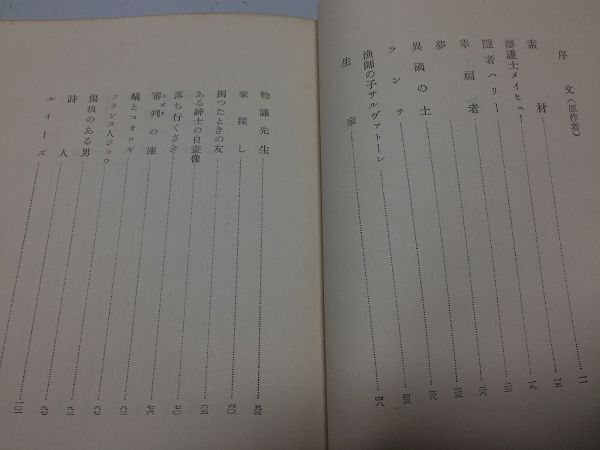 序文(原作者)……一一
素材……一五
辯護士メイヒュー……一九
隱者ハリー……二三
幸福者……二八
夢……
異國の土……三八
ランチ……四三
漁師の子サルヴァトーレ……四八
生家
物識先生……五三
家探し……六〇
困つたときの友……六五
ある紳士の自畫像……七〇
落ち行くさき……七六
審判の座……八二
蟻とコオロギ……八七
フランス人ジョウ……九二
傷痕のある男……九七
詩人……一〇一
ルイーズ